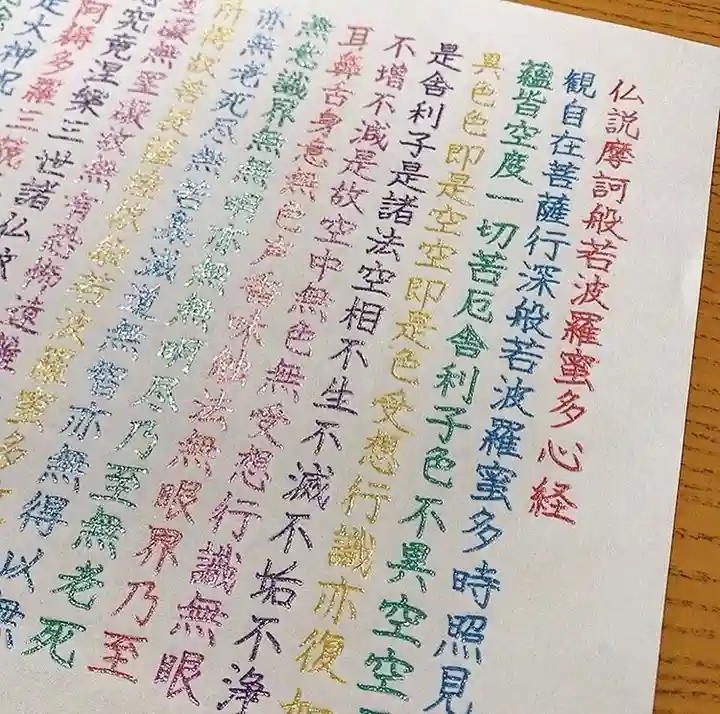 仏説摩訶般若波羅蜜多心経
観自在菩薩行深般若波羅蜜多時照見
蘊皆空度一切苦厄舎利子色不異空空
異色色即是空空即是色受想行識亦復如
是舎利子是諸法空相不生不滅不垢不浄
不増不減是故空中無色無受想行識無眼
耳鼻舌身意無色声香味触法無眼界乃至
無意識界無無明亦無無明尽乃至無老死
亦無老死尽無苦集滅道無智亦無得以無
所得故菩提薩埵依般若波羅蜜多
礙無罣礙故無有恐怖遠離
究竟涅槃三世諸仏依
阿耨多羅三藐
是大神呪